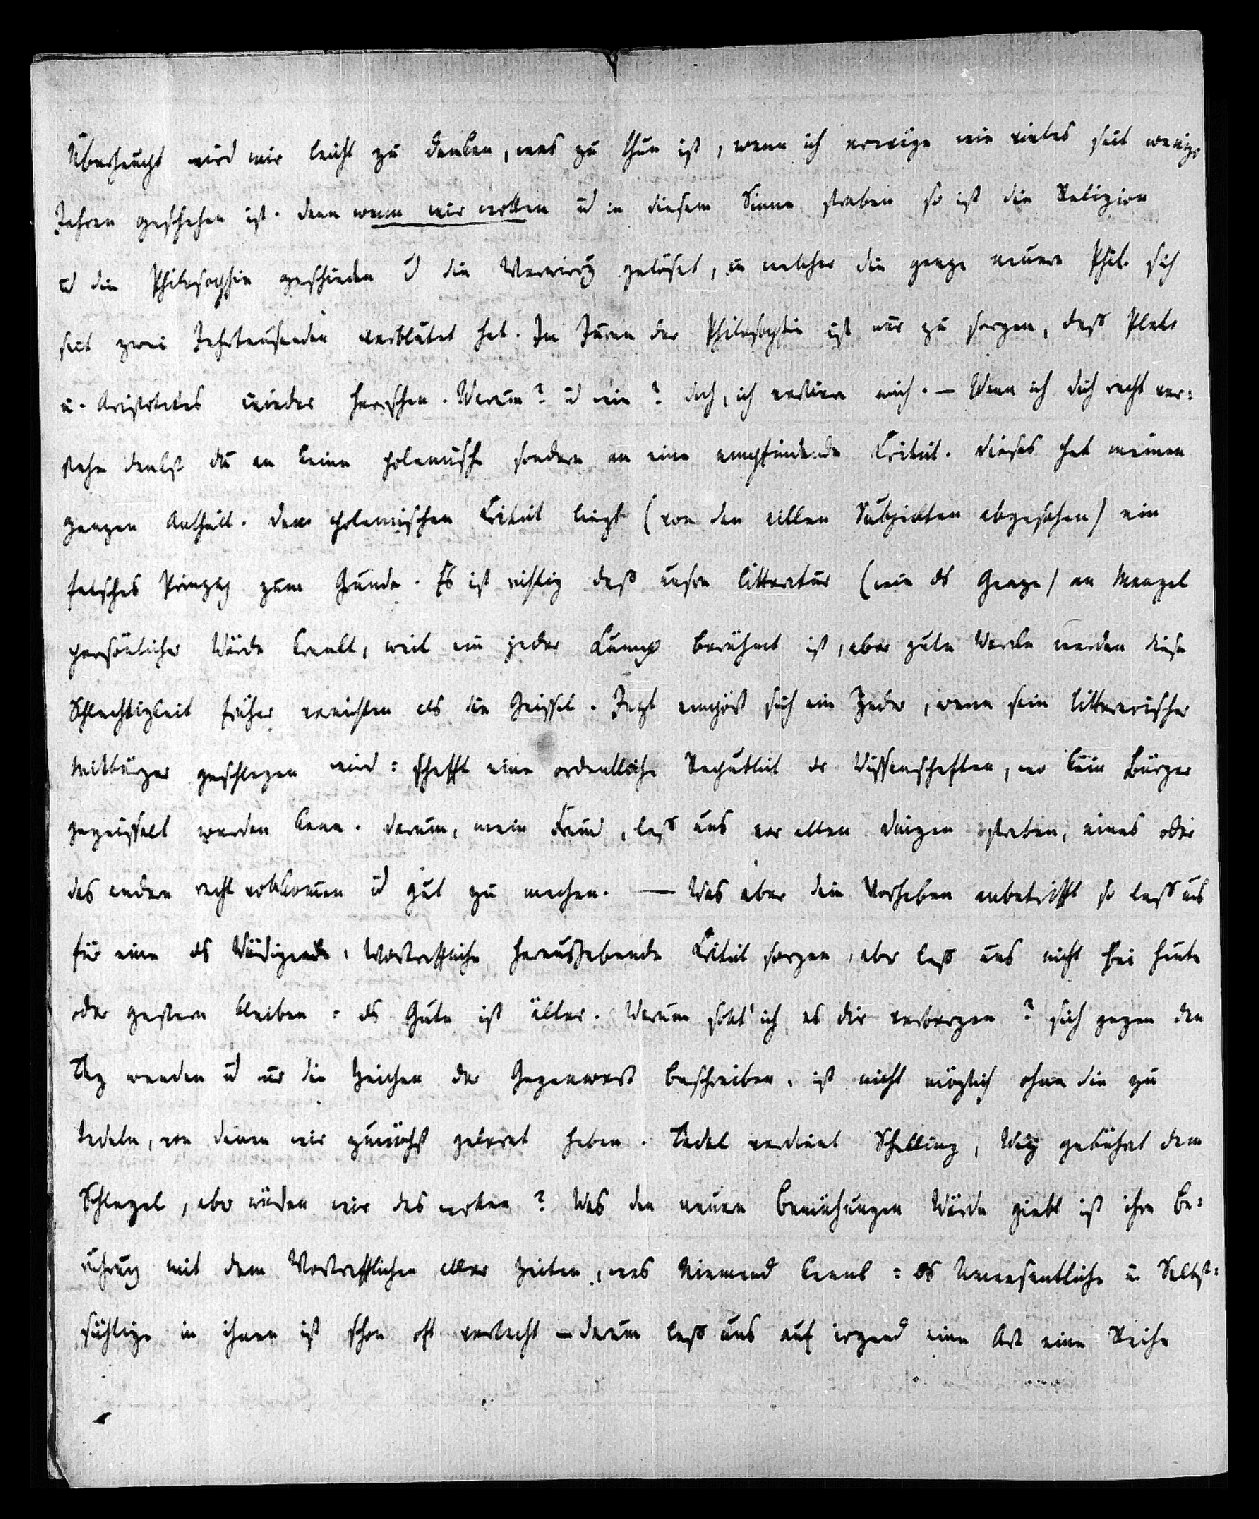 Überhaupt wird mir leicht zu denken, was zu thun ist, wenn ich erwäge wie vieles seit wenigen
Jahren geschehen ist. denn wenn wir wollen ud in diesem Sinne streben so ist die Religion
ud die Philosophie geschieden ud die Verwirrg gelöset, in welcher die ganze neuere Phil. sich
seit zwei Jahrtausenden verblutet hat. Im Innern der Philosophie ist nur zu sorgen, daß Plato
u. Aristoteles wieder herrschen. Warum? ud wie? doch, ich verliere mich. — Wenn ich dich recht ver=
stehe denkst du an keine polemische sondern an eine empfindende Kritik. dieses hat meinen
ganzen Antheil. der polemischen Kritik liegt (von den allen Subjekten abgesehen) ein
falsches Prinzip zum Grunde. Es ist richtig daß unsre Litteratur (wie ds Ganze) an Mangel
persönlicher Würde krankt, weil ein jeder Lump berühmt ist, aber gute Werke werden diese
Schlechtigkeit früher vernichten als die Geissel. Jezt empört sich ein Jeder, wenn sein litterarischer
Mitbürger geschlagen wird: schafft eine ordentliche Republik der Wissenschaften, wo kein Bürger
gegeisselt werden kann. darum, mein Freund, laß uns vor allen dingen streben, eines oder
das andere recht vollkommen ud gut zu machen. — Was aber dein Vorhaben anbetrifft so laß uns
für eine ds Würdigende, Vortreffliche heraushebende Kritik sorgen, aber laß uns nicht bei heute
oder gestern bleiben: ds Gute ist älter. Warum sollt' ich es dir verbergen? sich gegen den
Tag wenden ud nur die Zeichen der Gegenwart beschreiben, ist nicht möglich ohne die zu
tadeln, von denen wir zunächst gelernt haben. Tadel verdient Schelling, Witz gebührt dem
Schlegel, aber würden wir das wollen? Was den neuern Bemühungen Würde giebt ist ihre Be=
rührung mit dem Vortrefflichen aller Zeiten, was Niemand kennt: ds Unwesentliche u Selbst=
süchtige in ihnen ist schon oft verlacht – darum laß uns auf irgend eine Art eine Reihe